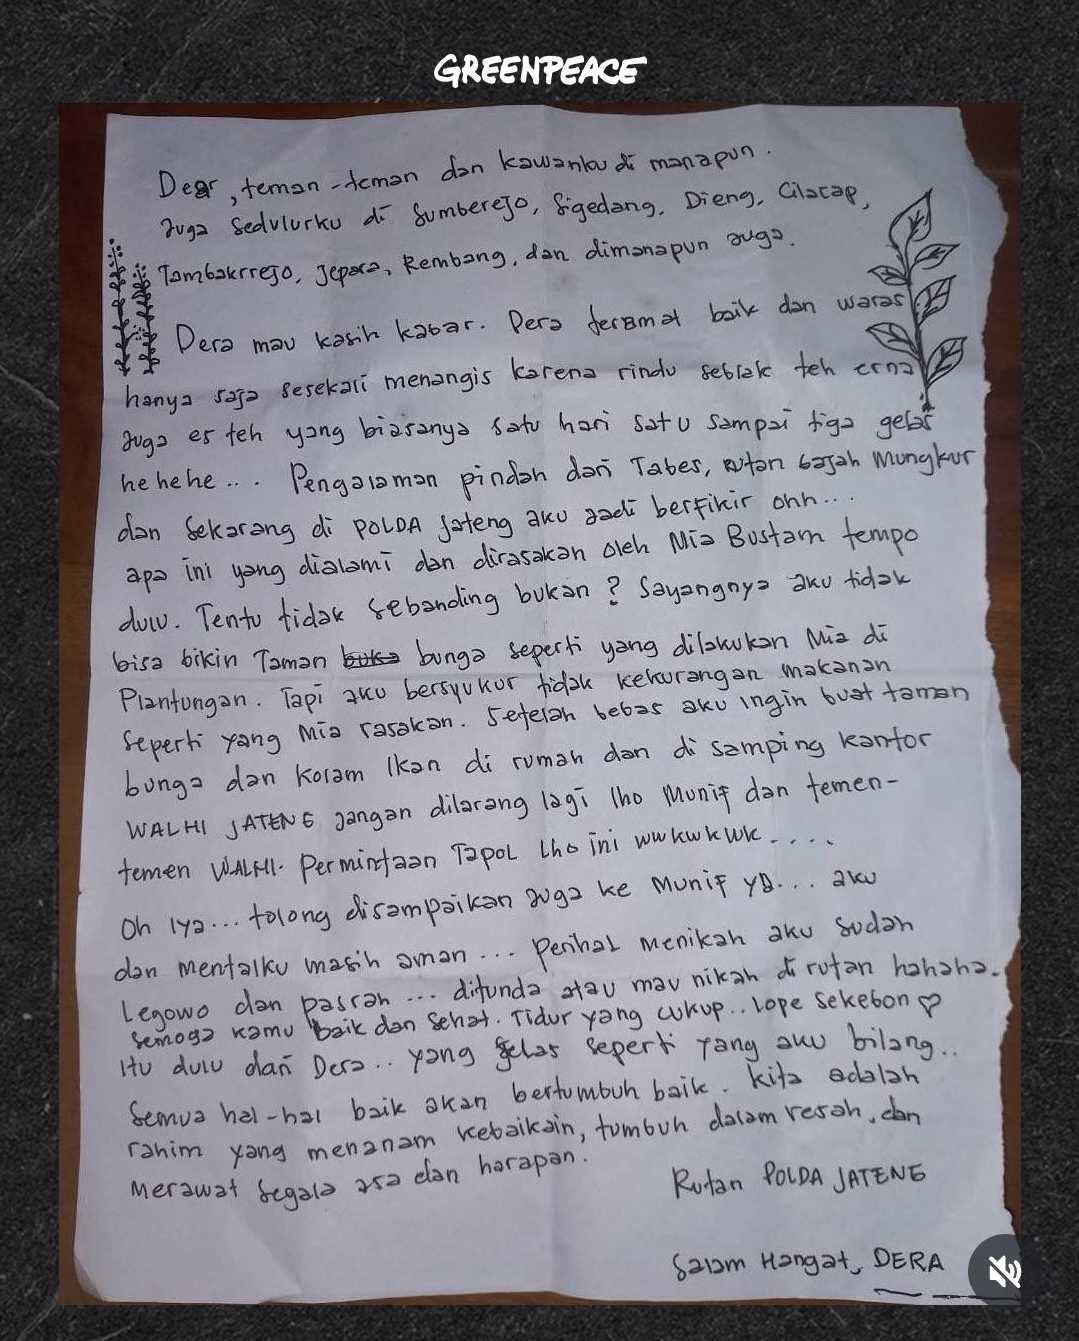 GREENPEACE
Dear, teman-teman dan kawanku di manapun.
Juga sedulurku di Sumberejo, Sigedang, Dieng, Cilacap,
Tambakrrejo, Jepara, Rembang, dan dimanapun juga.
Dera mau kasih kabar. Dera teramat baik dan waras
hanya saja sesekali menangis karena rindu seblak teh erna
juga es teh yang biasanya satu hari satu sampai tiga gelas
hehehe... Pengalaman pindah dari Tabes, rutan bajah Mungkur
dan sekarang di POLDA Jateng aku jadi berfikir ohh....
apa ini yang dialami dan dirasakan oleh Mia Bustam tempo
dulu. Tentu tidak sebanding bukan? Sayangnya aku tidak
bisa bikin Taman buka bunga seperti yang dilakukan Mia di
Plantungan. Tapi aku bersyukur tidak kekurangan makanan
seperti yang Mia rasakan. Setelah bebas aku ingin buat taman
bunga dan kolam ikan di rumah dan di samping kantor
WALHI JATENG jangan dilarang lagi lho Munif dan temen-
temen WALHI. Permintaan Tapol Lho ini wwkwkwk....
Oh iya... tolong disampaikan juga ke Munif ya... aku
dan mentalku masih aman... Perihal Menikah aku sudah
Legowo dan pasrah... ditunda atau mau nikah di rutan hahaha.
semoga kamu baik dan sehat. Tidur yang cukup.. Lope sekebon ♡
Itu dulu dari Dera.. yang jelas seperti yang aku bilang..
Semua hal-hal baik akan bertumbuh baik. Kita adalah
rahim yang menanam kebaikain, tumbuh dalam resah, dan
Merawat segala asa dan harapan.
Rutan POLDA JATENG
Salam Hangat, DERA